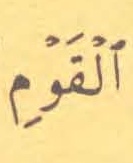 ٱلْقَوْمِ